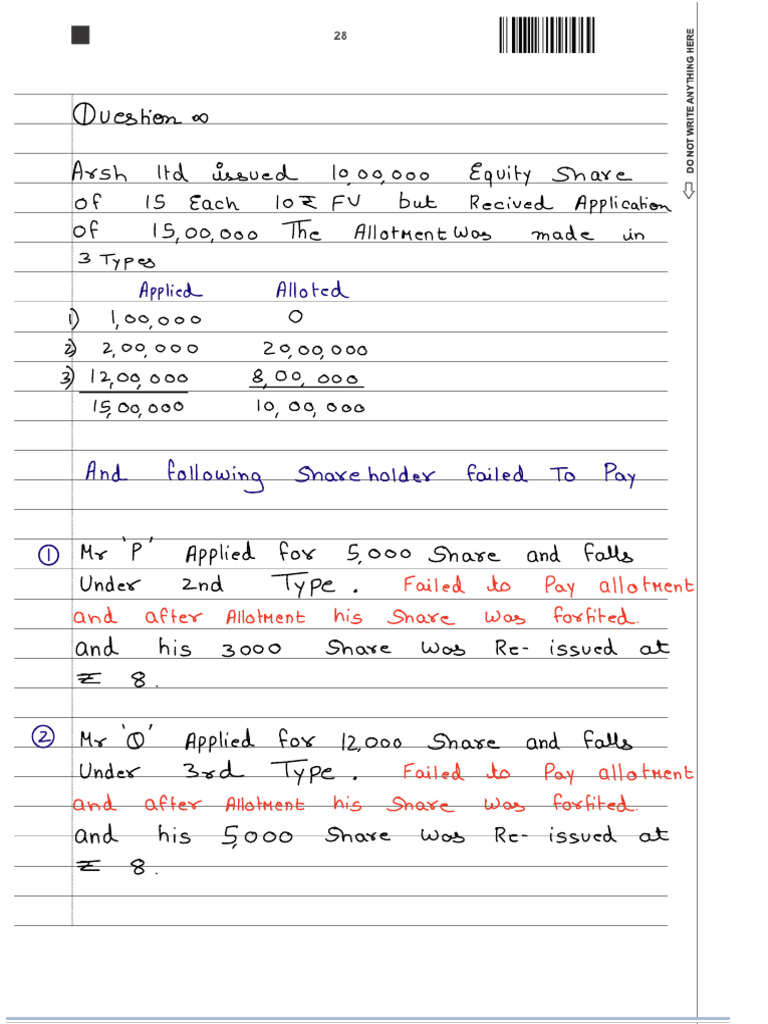 28
DO NOT WRITE ANYTHING HERE
Question ∞
Arsh ltd issued 10,00,000 Equity Share
of 15 Each 10₹ FV but Recived Application
of 15,00,000 The Allotment Was made in
3 Types
Applied Alloted
1) 1,00,000 0
2) 2,00,000 20,00,000
3) 12,00,000 8,00,000
15,00,000 10,00,000
And following Shareholder failed To Pay
① Mr 'P' Applied for 5,000 Share and falls
Under 2nd Type. Failed to Pay allotment
and after Allotment his Share was forfited.
and his 3000 Share was Re-issued at
₹ 8.
② Mr 'Q' Applied for 12,000 Share and falls
Under 3rd Type. Failed to Pay allotment
and after Allotment his Share was forfited.
and his 5,000 Share was Re-issued at
₹ 8.